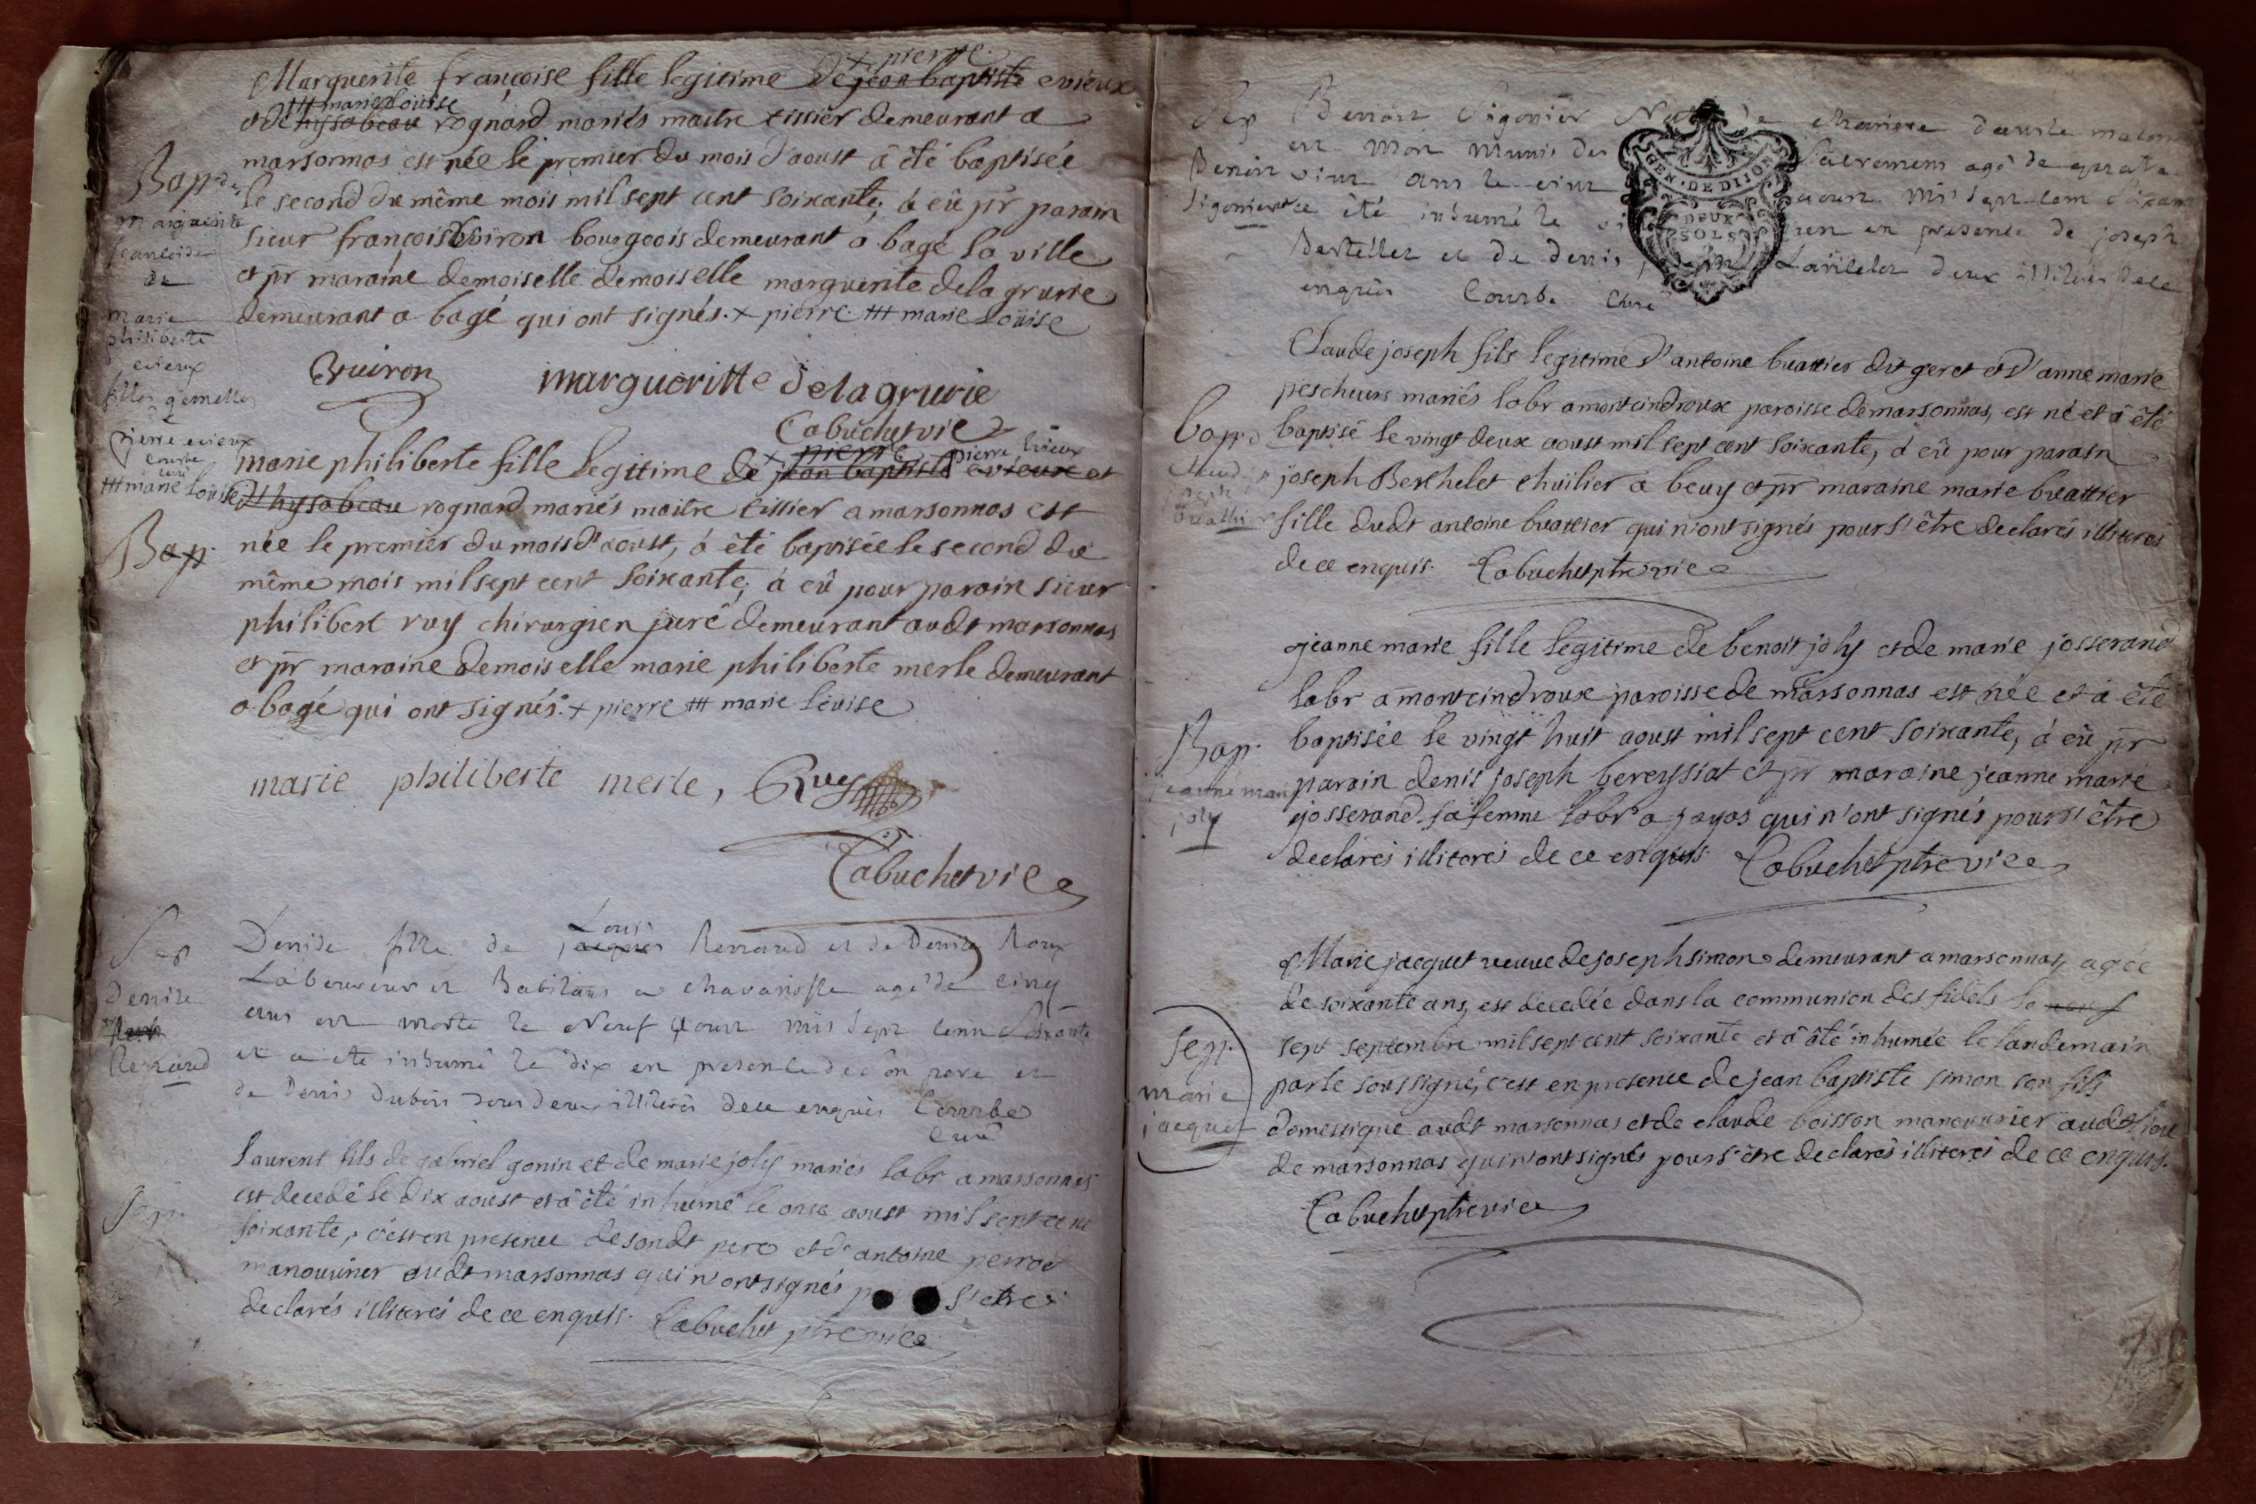 + pierre
Marguerite françoise fille legitime de jean baptiste evieux
ttt marie loüise
et de hysabeau rognard mariés maitre tissier demeurant a
marsonnas est née le premier du mois d'aoust â êté baptisée
le second du même mois mil sept cent soixante, á eû pr parain
sieur françois Vuiron bourgeois demeurant a bagé la ville
et pr maraine demoiselle demoiselle marguerite dela grurie
demeurant a bagé qui ont signés. + pierre. ttt marie loüise
Bap
marguerite
francoise
de
marie
philiberte
evieux
filles gemelles
de
pierre evieux
courbe
curé
ttt marie loüise
Vuiron marguoritte delagrurie
Cabuchet vic
+ pierre pierre evieux
marie philiberte fille legitime de jean baptiste evieux et
d'hysabeau rognard mariés maitre tissier a marsonnas est
née le premier du mois d'aoust, á êté baptisée le second du
même mois mil sept cent soixante, á eû pour parain sieur
philibert ruy chirurgien juré demeurant audt marsonnas
et pr maraine demoiselle marie philiberte merle demeurant
a bagé qui ont signés. + pierre ttt marie loüise
Bap.
marie philiberte merle, Ruy
Cabuchet vic
Sep
Denise
Renaud
Louis
Denise fille de jacques Renaud et de Denise Roux
Laboureur et Habitans a chavanosse agé de cinq
ans est morte le Neuf Aoust mil sept cent soixante
et a ete inhumé le dix en presence de son pere et
de Denis Dubois tous deux illiterés de ce enquis Courbe
Curé
Sep.
Laurent fils de gabriel gonin et de marie joly mariés labr a marsonnas
est decedé le dix aoust et â êté inhumé le onze aoust mil sept cent
soixante, c'est en presence de sondt pere et d'antoine perrod
manouvrier audt marsonnas qui n'ont signés s'etre
declarés illiterés de ce enquis. Cabuchet ptre vice
Sep
Benoit
Ligonier
Benoit Ligonier
est mort munis des Sacremens agé de quatre
vint ans le vint aoust mil sept cent soixante
et a été inhumé le en presence de joseph
et de denis deux illiteres de ce
enquis Courbe Curé
GEN. DE DIJON
DEUX
SOLS
Claude joseph fils legitime d'antoine buattier dit geret et d'anne marie
pescheurs mariés labr a montcindroux paroisse de marsonnas, est né et â êté
baptisé le vingt deux aoust mil sept cent soixante, á eû pour parain
joseph Berthelet thuilier á beuy et pr maraine marie buattier
fille dudt antoine buattier qui n'ont signés pour s'être declarés illiterés
de ce enquis. Cabuchet ptre vice
bap
Claude
joseph
buattier
jeanne marie fille legitime de benoit joly et de marie josserand
labr a montcindroux paroisse de marsonnas est née et â êté
baptisée le vingt huit aoust mil sept cent soixante, á eû pr
parain denis joseph bereyssiat et pr maraine jeanne marie
josserand sa femme labr a jayas qui n'ont signés pour s'être
declarés illiterés de ce enquis Cabuchet ptre vice
Bap.
jeanne marie
joly
Marie jacquet veuve de joseph simon demeurant a marsonnas, agée
de soixante ans, est decedée dans la communion des fidels le neuf
sept septembre mil sept cent soixante et â âté inhumée le landemain
par le soussigné, c'est en presence de jean baptiste simon son fils
domestique audt marsonnas et de claude boisson manouvrier audt lieu
de marsonnas qui n'ont signés pour s'être declarés illiterés de ce enquis.
Cabuchet ptre vice
Sep.
marie
jacquet